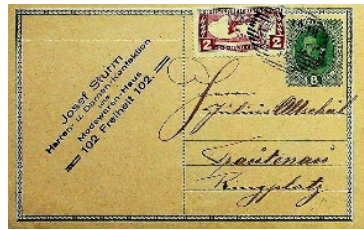 Josef Sturm
Herren- u. Damen-Konfektion
und
Modewaren-Haus
102 Freiheit 102.
2
8
Herrn
Julius Altschul
Trautenau
Ringplatz